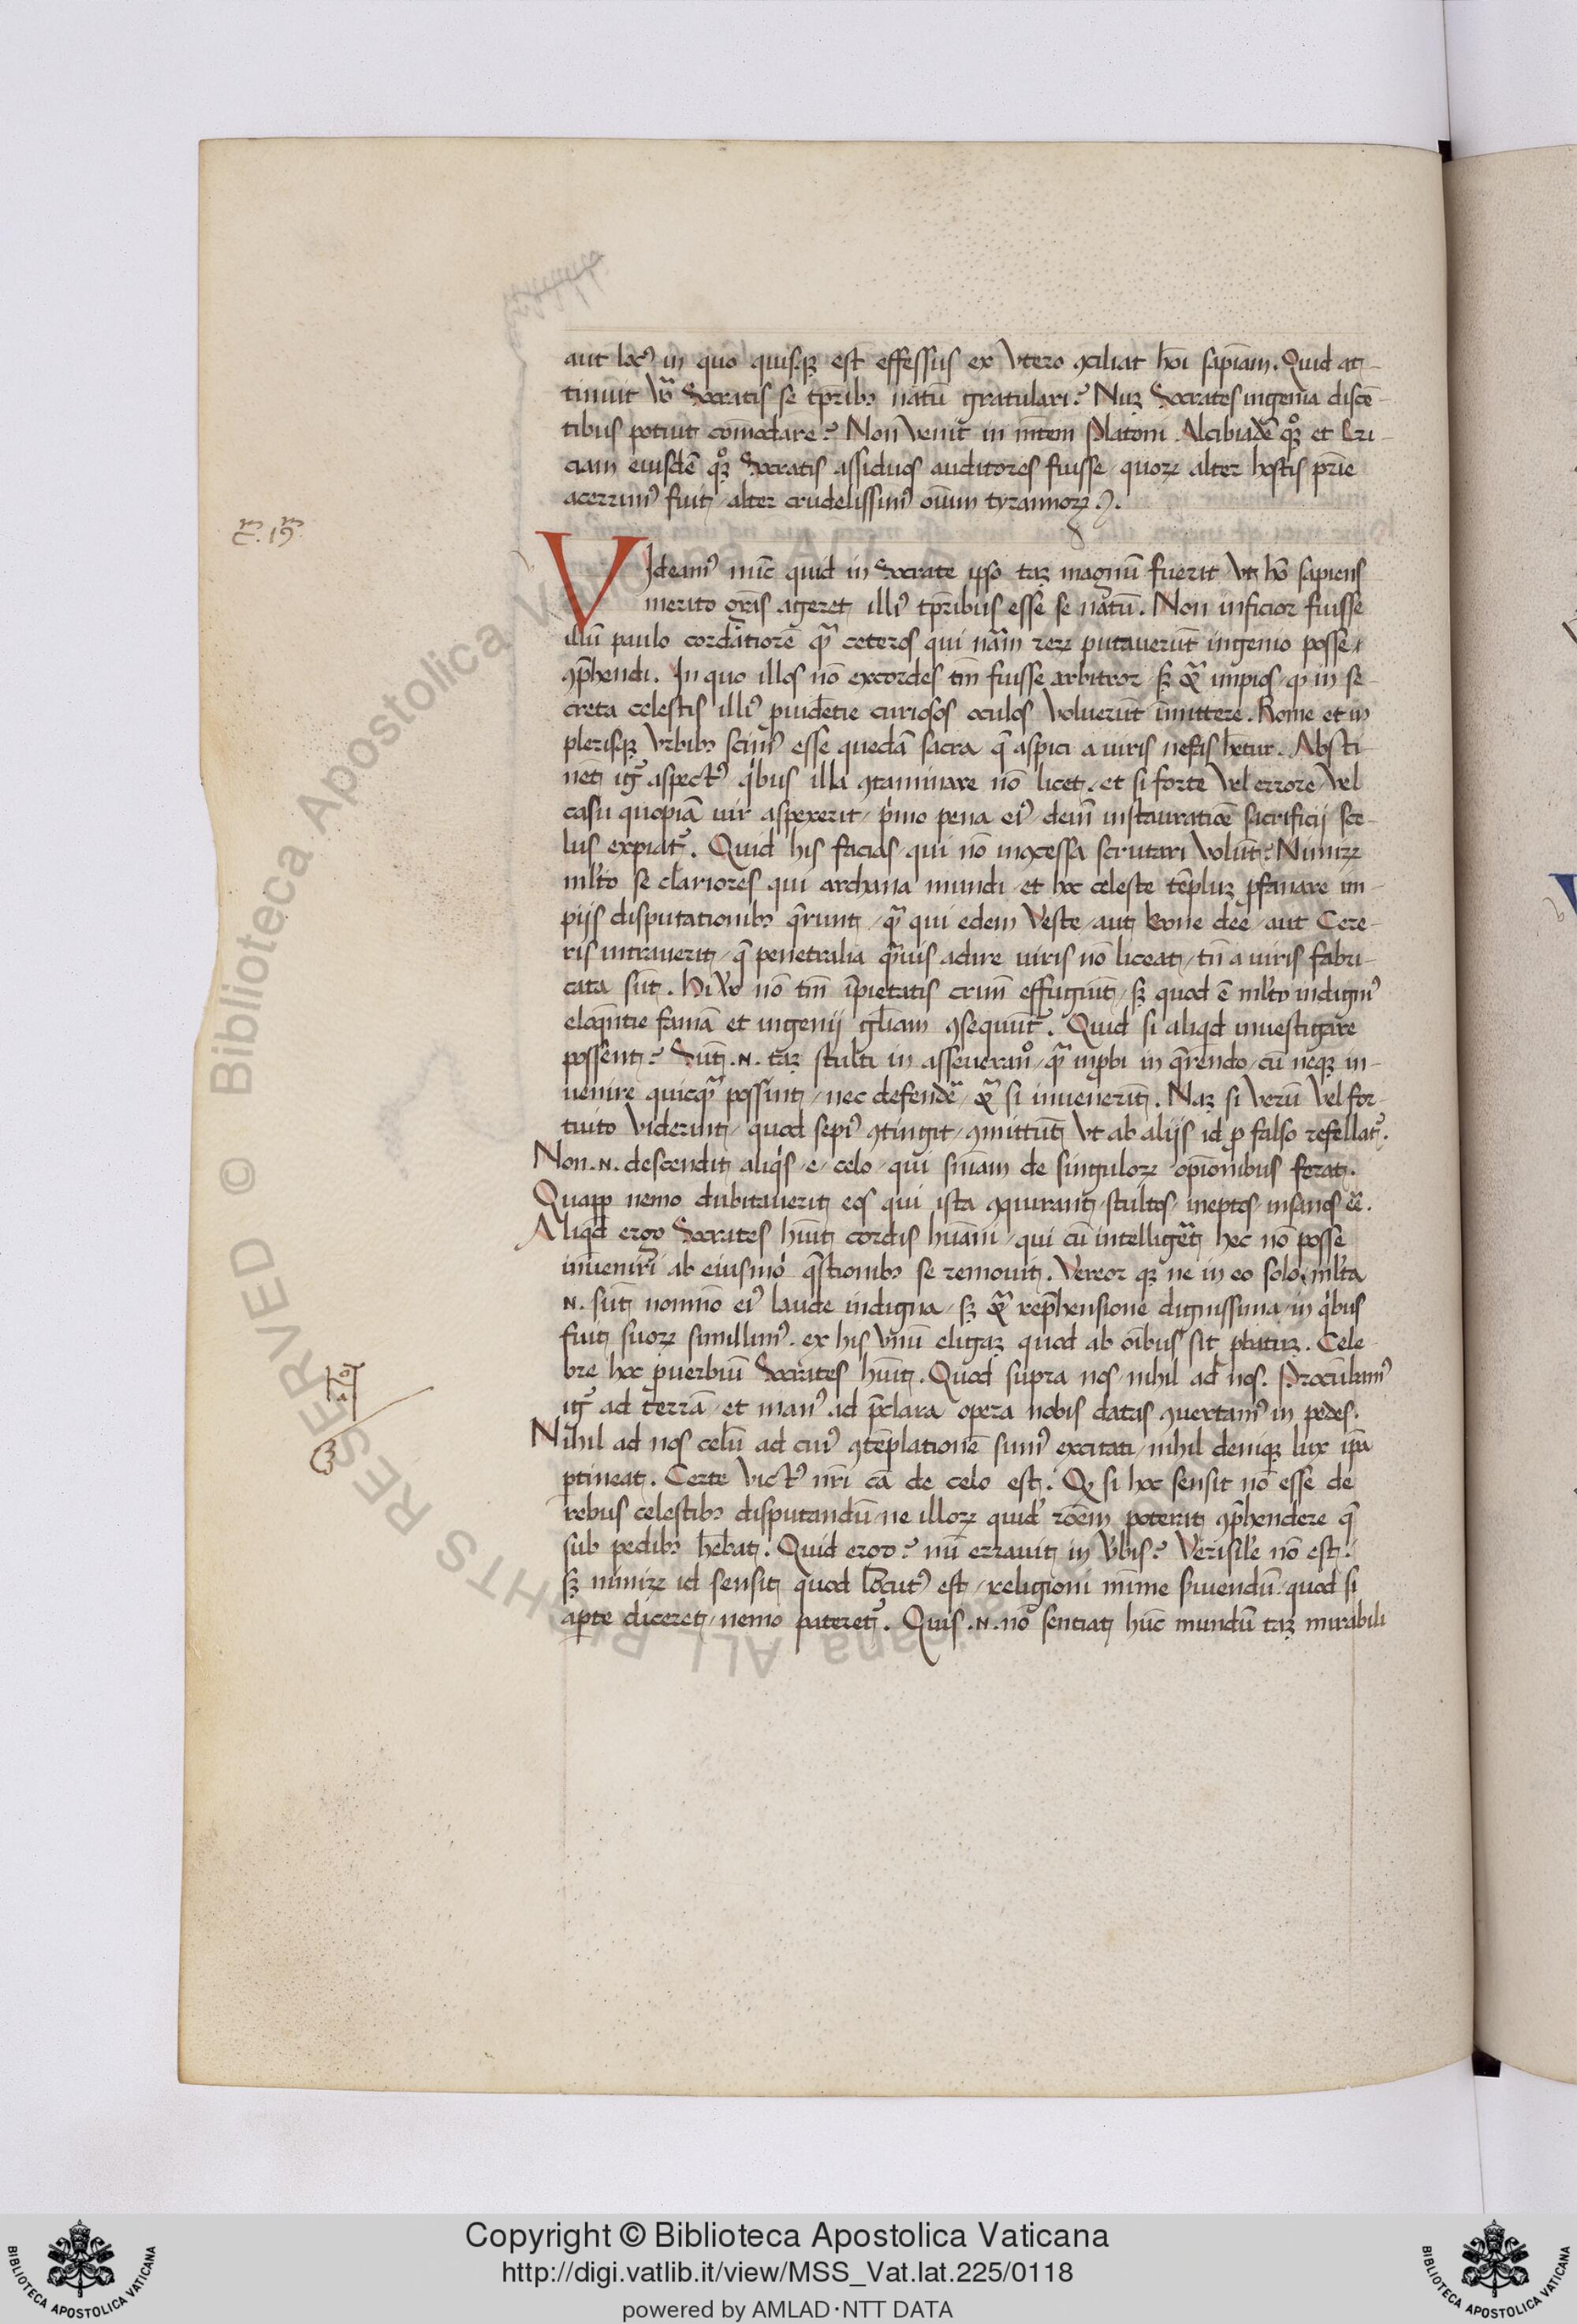 aut locꝰ in quo quisqꝫ est effessus ex vtero ꝯciliat hōi sapīam. Quid at-
tinuit vͦ Socratis se tp̄ribꝫ natū gratulari? Nuꝫ Socrates ingenia discē-
tibus potuit cōmodare? Non venit in mētem Platoni Alcibiadē qͦꝫ et Cri-
ciam eiusdē qͦꝫ Socratis assiduos auditores fuisse / quoꝝ alter hostis prīe
acerrimꝰ fuit / alter crudelissimꝰ oīum tyrannoꝝ.
c̄. 19.
VIdeamꝰ nūc quid in Socrate ipso taꝫ magnū fuerit vt hō sapiens
merito gr̄as ageret illiꝰ tp̄ribus esse se natū. Non inficior fuisse
illū paulo cordatiorē qͣ̄ ceteros qui nāꝫ reꝝ putauerūt ingenio posse
ꝯp̄hendi. In quo illos nō excordes tm̄ fuisse arbitror / sꝫ et̄ impios / qꝫ in se-
creta celestis illiꝰ ꝓuidētie curiosos oculos voluerūt īmittere. Rome et in
plerisqꝫ vrbibꝫ scimꝰ esse quedā sacra q̄ aspici a viris nefas hētur. Absti-
nēt igͬ aspectꝰ qͥbus illa ꝯtaminare nō licet. et si forte vel errore / vel
casu quopiā uir aspexerit / pͥmo pena eiꝰ / dein̄ instauratiōe sacrificij sce-
lus expiatᷣ. Quid his facias qui nō incōcessa scrutari volūt? Nimirꝫ
ml̓to se clariores qui archana mundi et hoc celeste tēpluꝫ ꝓfanare im-
pijs disputationibꝫ q̄runt / qͣ̄ qui edem veste / aut bone dee / aut Cere-
ris intrauerit / q̄ penetralia qͣ̄uis adire uiris nō liceat / tn̄ a uiris fabri-
cata sūt. Hi vͦ nō tm̄ īpietatis crimē effugiūt / sꝫ quod ē ml̓to indigniꝰ
eloq̄ntie famā et ingenij gl̄iam ꝯsequūtᷣ. Quid si aliqͥd inuestigare
possent? Sūt .N. taꝫ stulti in asseuerandͦ / qͣ̄ īprobi in q̄rendo / cū neqꝫ in-
uenire quicqͣ̄ possint / nec defendeͬ / et̄ si inuenerīt. Naꝫ si verū vel for-
tuito viderint / quod sepiꝰ ꝯtingit / ꝯmittūt vt ab alijs id ꝓ falso refellatᷣ.
Non .N. descendit aliqͥs / e / celo / qui sn̄iam de singuloꝝ opīonibus ferat.
Quapp̄ nemo dubitauerit eos qui ista ꝯquirant / stultos / ineptos / insanos eē.
Aliqͥd ergo Socrates hūit cordis humani / qui cū intelligeͬt hec nō posse
inueniri ab eiusmōi q̄stionibꝫ se remouit. Vereor qꝫ ne in eo solo. ml̓ta
.N. sūt nōmō eiꝰ laude indigna / sꝫ et̄ rep̄hensione dignissima / in qͥbus
fuit suoꝝ simillimꝰ. ex his vnū eligaꝫ quod ab oībus sit ꝓbatuꝫ. Cele-
bre hoc ꝓuerbiū Socrates hūit. Quod supra nos / nihil ad nos. Procūbamꝰ
No
ta
igͬ ad terrā / et manꝰ ad p̄clara opera nobis datas ꝯuertamꝰ in pedes.
Nihil ad nos celū ad cuiꝰ ꝯtēplationē sumꝰ excitati / nihil deniqꝫ lux ip̄a
ꝑtineat. Certe victꝰ nr̄i cā de celo est. Qꝫ si hoc sensit nō esse de
rebus celestibꝫ disputandū / ne illoꝝ quidē rōem poterit ꝯp̄hendere q̄
sub pedibꝫ hēbat. Quid ergo? nū errauit in v̓bis? Verisil̓e nō est.
sꝫ nimirꝫ id sensit quod locutꝰ est / religioni mīme ẜuiendū. quod si
aꝑte diceret / nemo pateretᷣ. Quis .N. nō sentiat hūc mundū taꝫ mirabili
Copyright © Biblioteca Apostolica Vaticana
http://digi.vatlib.it/view/MSS_Vat.lat.225/0118
powered by AMLAD·NTT DATA
BIBLIOTECA APOSTOLICA VATICANA
BIBLIOTECA APOSTOLICA VATICANA